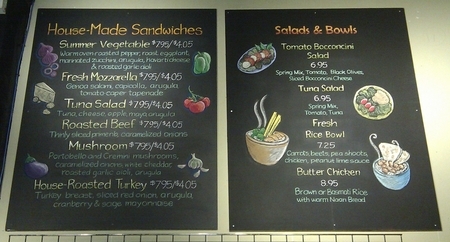 House-Made Sandwiches
Summer Vegetable $7.95/$4.05
Warm oven-roasted pepper, roast, eggplant,
marinated zucchini, arugula, havarti cheese
& roasted garlic aioli
Fresh Mozzarella $7.95/$4.05
Genoa salami, capicollo, arugula
tomato-caper tapenade
Tuna Salad $7.95/$4.05
Tuna, cheese, apple, mayo, arugula
Roasted Beef $7.95/$4.05
Thinly sliced primerib, caramelized onions
Mushroom $7.95/$4.05
Portobello and Cremini mushrooms,
caramelized onions, white cheddar,
roasted garlic aioli, arugula
House-Roasted Turkey $7.95/$4.05
Turkey breast, sliced red onion, arugula,
cranberry & sage mayonnaise
Salads & Bowls
Tomato Bocconcini
Salad
6.95
Spring Mix, Tomato, Black Olives,
Sliced Bocconcini Cheese
Tuna Salad
6.95
Spring Mix,
Tomato, Tuna
Fresh
Rice Bowl
7.25
Carrots, beets, pea shoots,
chicken, peanut lime sauce
Butter Chicken
8.95
Brown or Basmati Rice
with warm Naan Bread